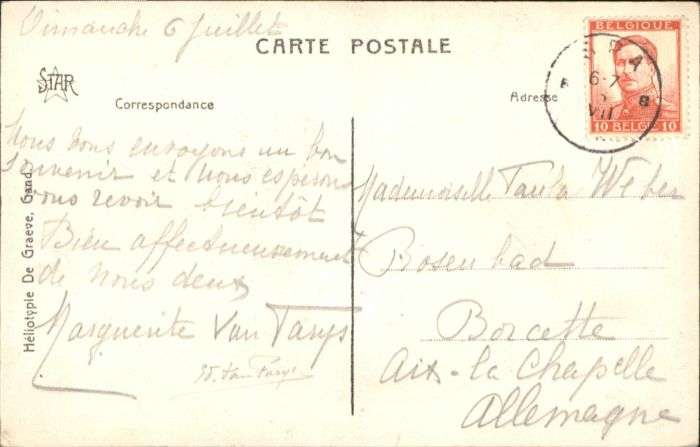 Dimanche 6 Juillet
CARTE POSTALE
STAR
Correspondance
Adresse
BELGIQUE
10 BELGIË 10
SPA
6-7
VII
Nous vous envoyons un bon
souvenir et nous espérons
vous revoir bientôt
Bien affectueusement
de nous deux
Marguerite Van
Mademoiselle Paula Weber
Rosenbad
Borcette
Aix-la Chapelle
Allemagne
Héliotypie De Graeve, Gand.